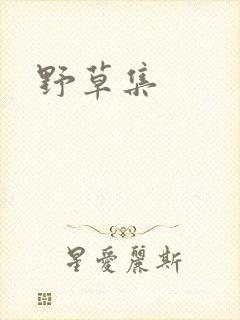 野草集
星愛麗斯